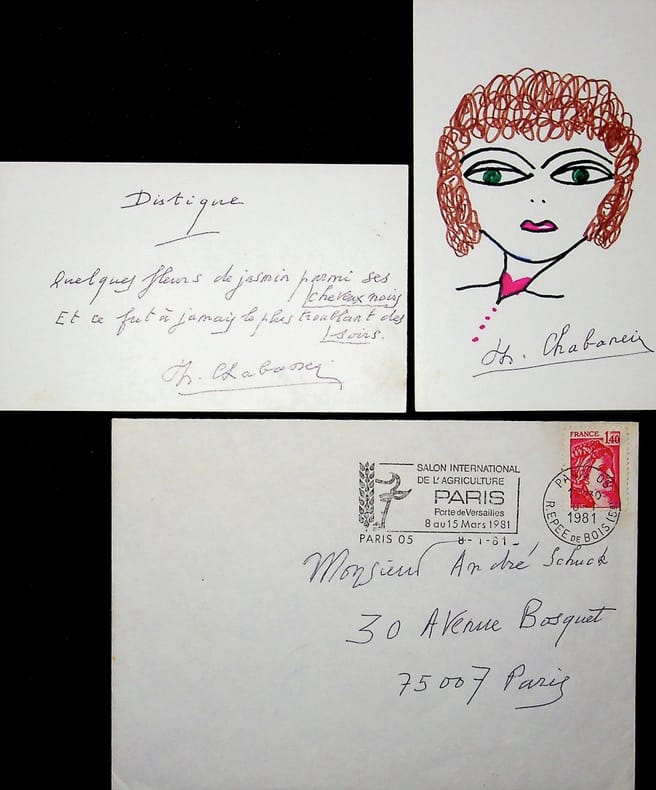 Distique
Quelques fleurs de jasmin parmi ses
cheveux noirs
Et ce fut à jamais le plus troublant des
soirs.
Th. Chabaneix
Th. Chabaneix
FRANCE 1,40
SALON INTERNATIONAL
DE L'AGRICULTURE
PARIS
Porte de Versailles
8 au 15 Mars 1981
PARIS 05 8-1-81
PARIS 05
1981
R. EPEE DE BOIS (5e)
Monsieur André Schuck
30 Avenue Bosquet
75007 Paris